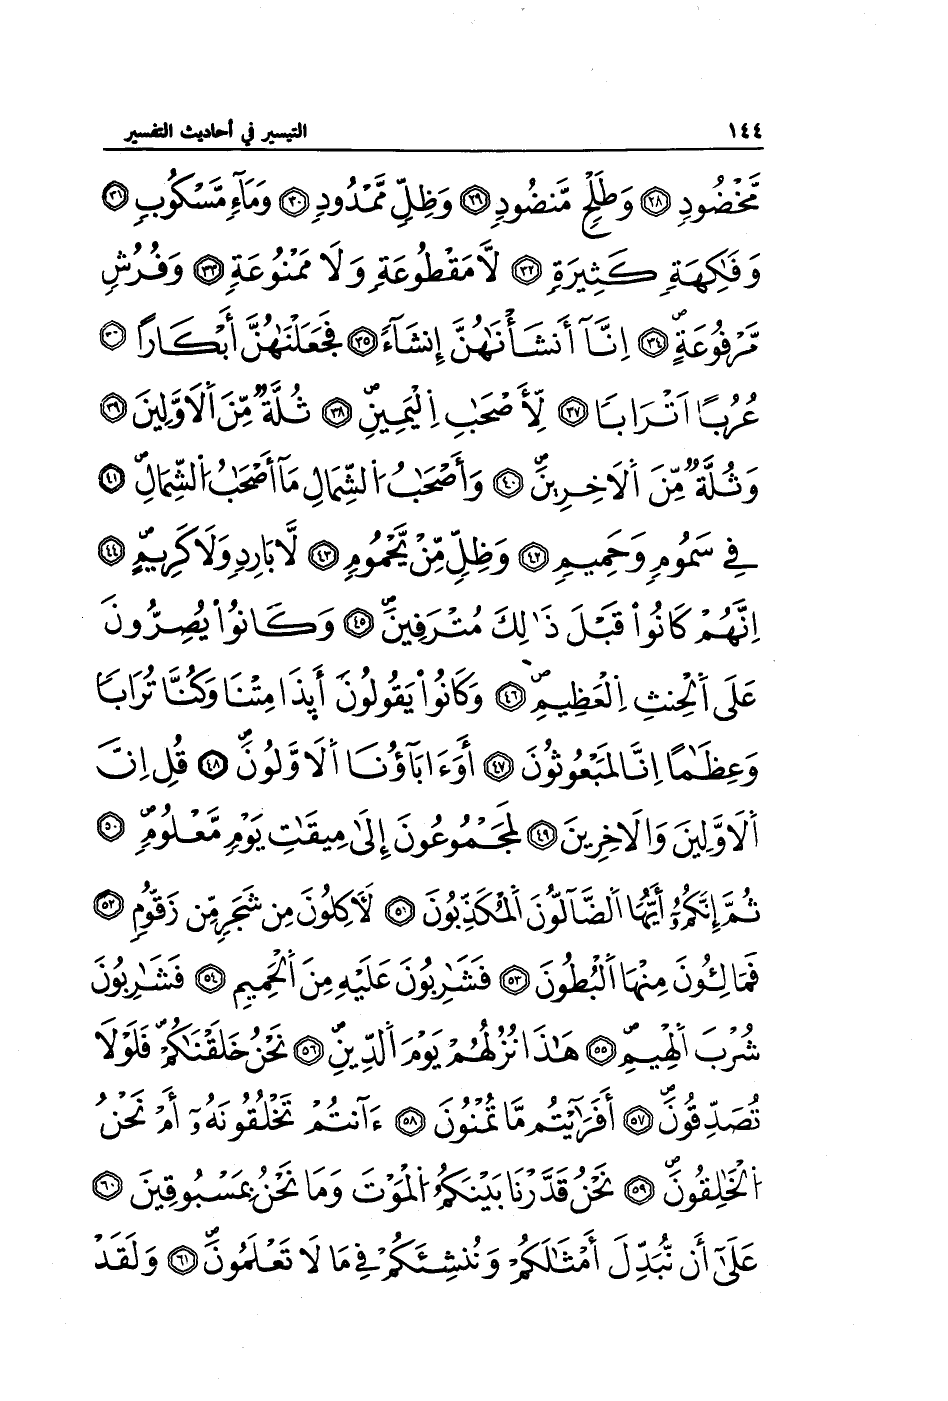 ١٤٤ التيسير في أحاديث التفسير
مَّخْضُودٍ ٢٨ وَطَلْحٍ مَّنضُودٍ ٢٩ وَظِلٍّ مَّمْدُودٍ ٣٠ وَمَآءٍ مَّسْكُوبٍ ٣١
وَفَٰكِهَةٍ كَثِيرَةٍ ٣٢ لَّا مَقْطُوعَةٍ وَلَا مَمْنُوعَةٍ ٣٣ وَفُرُشٍ
مَّرْفُوعَةٍ ٣٤ اِنَّآ أَنشَأْنَٰهُنَّ إِنشَآءً ٣٥ فَجَعَلْنَٰهُنَّ أَبْكَارًا ٣٦
عُرُبًا اَتْرَابًا ٣٧ لِّأَصْحَٰبِ اِ۬لْيَمِينِ ٣٨ ثُلَّةٌ مِّنَ اَ۬لَاوَّلِينَ ٣٩
وَثُلَّةٌ مِّنَ اَ۬لَاخِرِينَ ٤٠ وَأَصْحَٰبُ اُ۬لشِّمَالِ مَآ أَصْحَٰبُ اُ۬لشِّمَالِ ٤١
فِے سَمُومٍ وَحَمِيمٍ ٤٢ وَظِلٍّ مِّنْ يَّحْمُومٍ ٤٣ لَّا بَارِدٍ وَلَا كَرِيمٍ ٤٤
اِنَّهُمْ كَانُواْ قَبْلَ ذَٰلِكَ مُتْرَفِينَ ٤٥ وَكَانُواْ يُصِرُّونَ
عَلَى اَ۬لْحِنثِ اِ۬لْعَظِيمِ ٤٦ وَكَانُواْ يَقُولُونَ أَيِذَا مِتْنَا وَكُنَّا تُرَابًا
وَعِظَٰمًا اِنَّا لَمَبْعُوثُونَ ٤٧ أَوَءَابَآؤُنَا اَ۬لَاوَّلُونَ ٤٨ قُلِ اِنَّ
اَ۬لَاوَّلِينَ وَالَاخِرِينَ ٤٩ لَمَجْمُوعُونَ إِلَىٰ مِيقَٰتِ يَوْمٍ مَّعْلُومٍ ٥٠
ثُمَّ إِنَّكُمُۥٓ أَيُّهَا اَ۬لضَّآلُّونَ اَ۬لْمُكَذِّبُونَ ٥١ لَأَكِلُونَ مِن شَجَرٍ مِّن زَقُّومٍ ٥٢
فَمَالِـُٔونَ مِنْهَا اَ۬لْبُطُونَ ٥٣ فَشَٰرِبُونَ عَلَيْهِ مِنَ اَ۬لْحَمِيمِ ٥٤ فَشَٰرِبُونَ
شُرْبَ اَ۬لْهِيمِ ٥٥ هَٰذَا نُزُلُهُمْ يَوْمَ اَ۬لدِّينِ ٥٦ نَحْنُ خَلَقْنَٰكُمْ فَلَوْلَا
تُصَدِّقُونَ ٥٧ أَفَرَٰٓيْتُم مَّا تُمْنُونَ ٥٨ ءَآنتُمْ تَخْلُقُونَهُۥٓ أَمْ نَحْنُ
اُ۬لْخَٰلِقُونَ ٥٩ نَحْنُ قَدَّرْنَا بَيْنَكُمُ اُ۬لْمَوْتَ وَمَا نَحْنُ بِمَسْبُوقِينَ ٦٠
عَلَىٰٓ أَن نُّبَدِّلَ أَمْثَٰلَكُمْ وَنُنشِئَكُمْ فِے مَا لَا تَعْلَمُونَ ٦١ وَلَقَدْ